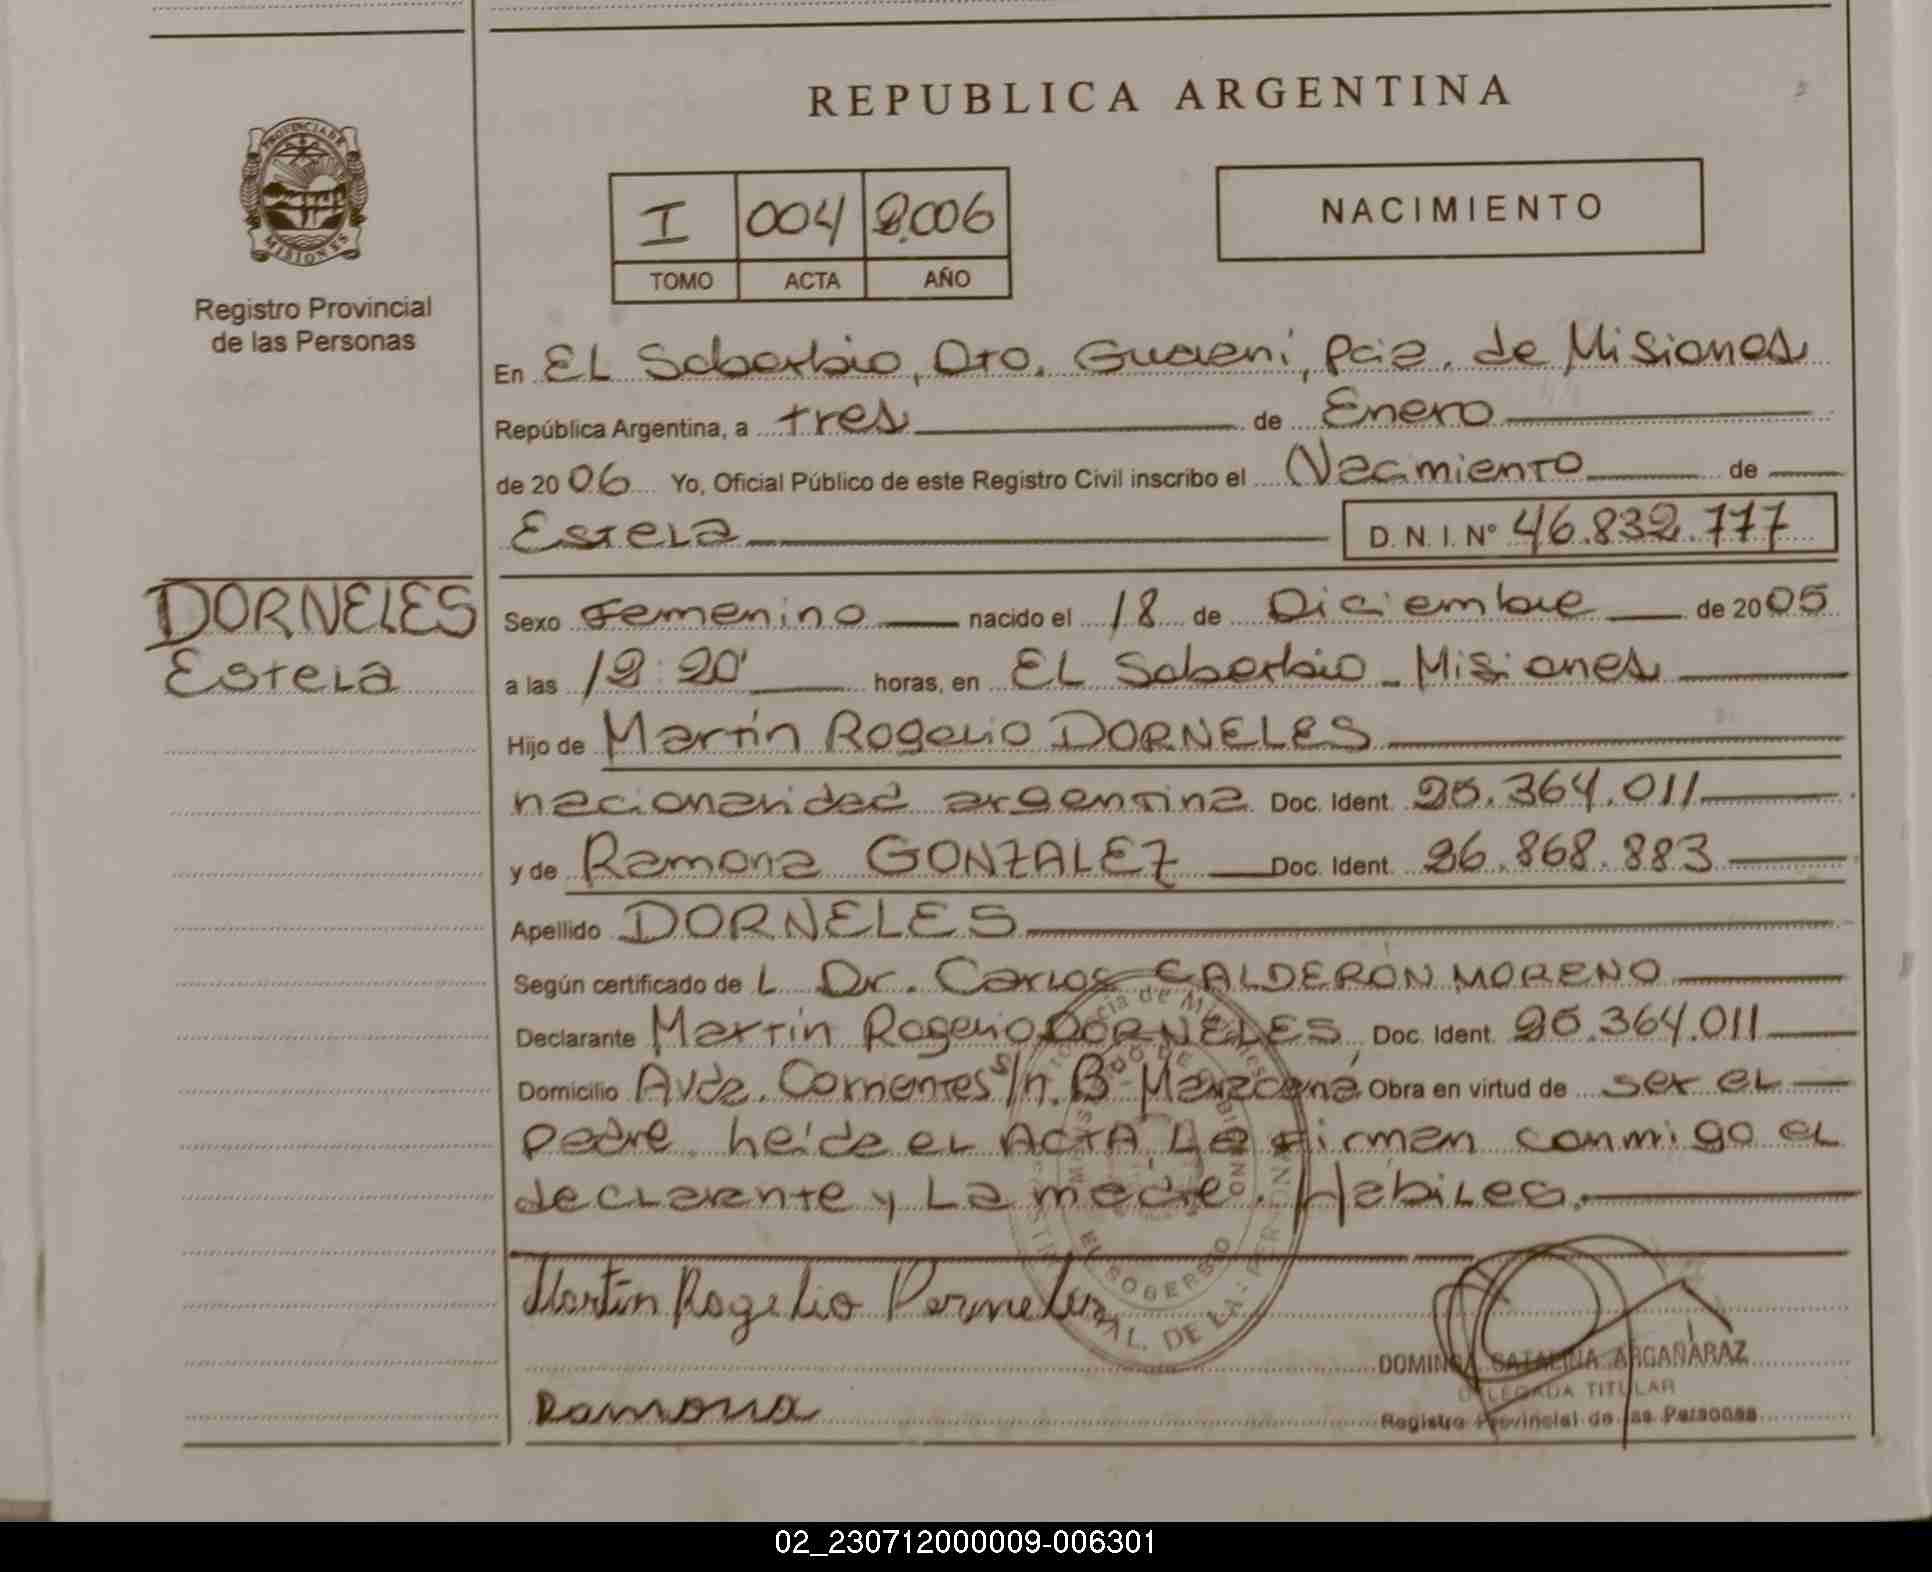 REPUBLICA ARGENTINA
PROVINCIA DE
MISIONES
Registro Provincial
de las Personas
I 004 2.006
TOMO ACTA AÑO
NACIMIENTO
En EL Soberbio, Dto. Guaraní, Pcia. de Misiones
República Argentina, a tres de Enero
de 2006 Yo, Oficial Público de este Registro Civil inscribo el Nacimiento de
Estela D. N. I. Nº 46.832.777
DORNELES
Estela
Sexo Femenino nacido el 18 de Diciembre de 2005
a las 12:20' horas, en EL Soberbio - Misiones
Hijo de Martín Rogelio DORNELES
nacionalidad argentina Doc. Ident. 25.364.011
y de Ramona GONZALEZ Doc. Ident. 26.868.883
Apellido DORNELES
Según certificado de L Dr. Carlos CALDERÓN MORENO
Declarante Martín Rogelio DORNELES, Doc. Ident. 25.364.011
Domicilio Avda. Corrientes s/n. Bº Obra en virtud de ser el
padre. heída el ACTA, La firman conmigo el
declarante y La madre. Hábiles.
Martin Rogelio Dorneles
DOMINGA CATALINA ARGAÑARAZ
DELEGADA TITULAR
Ramona
Registro Provincial de las Personas
EL SOBERBIO
02_230712000009-006301